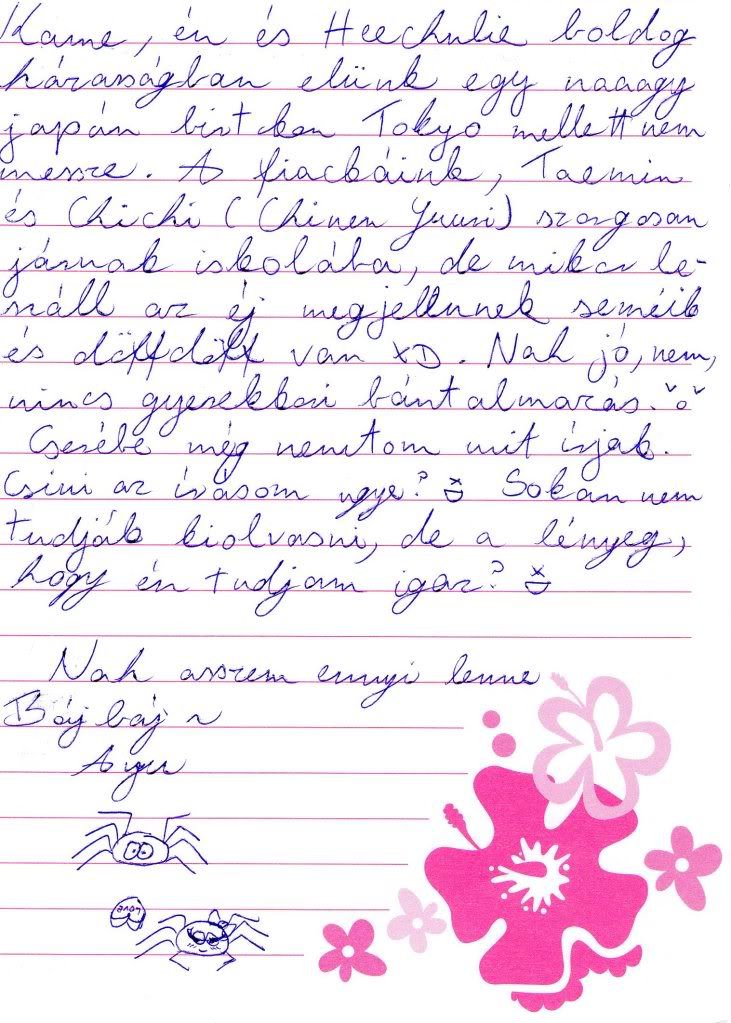 Kame, én és Heechulie boldog
házasságban elünk egy naaagy
japán birtokon Tokyo mellett nem
messze. A fiackáink, Taemin
és Chichi (Chinen Yuuri) szorgosan
járnak iskolába, de mikor le-
száll az éj megjelennek seméik
és döffdöff van XD. Nah jó, nem,
nincs gyerekkori bántalmazás. ˇoˇ
Cserébe még nemtom mit írjak.
Csini az írásom ugye? xD Sokan nem
tudják kiolvasni, de a lényeg,
hogy én tudjam igaz? xD
Nah asszem ennyi lenne
Báj báj ~
Love